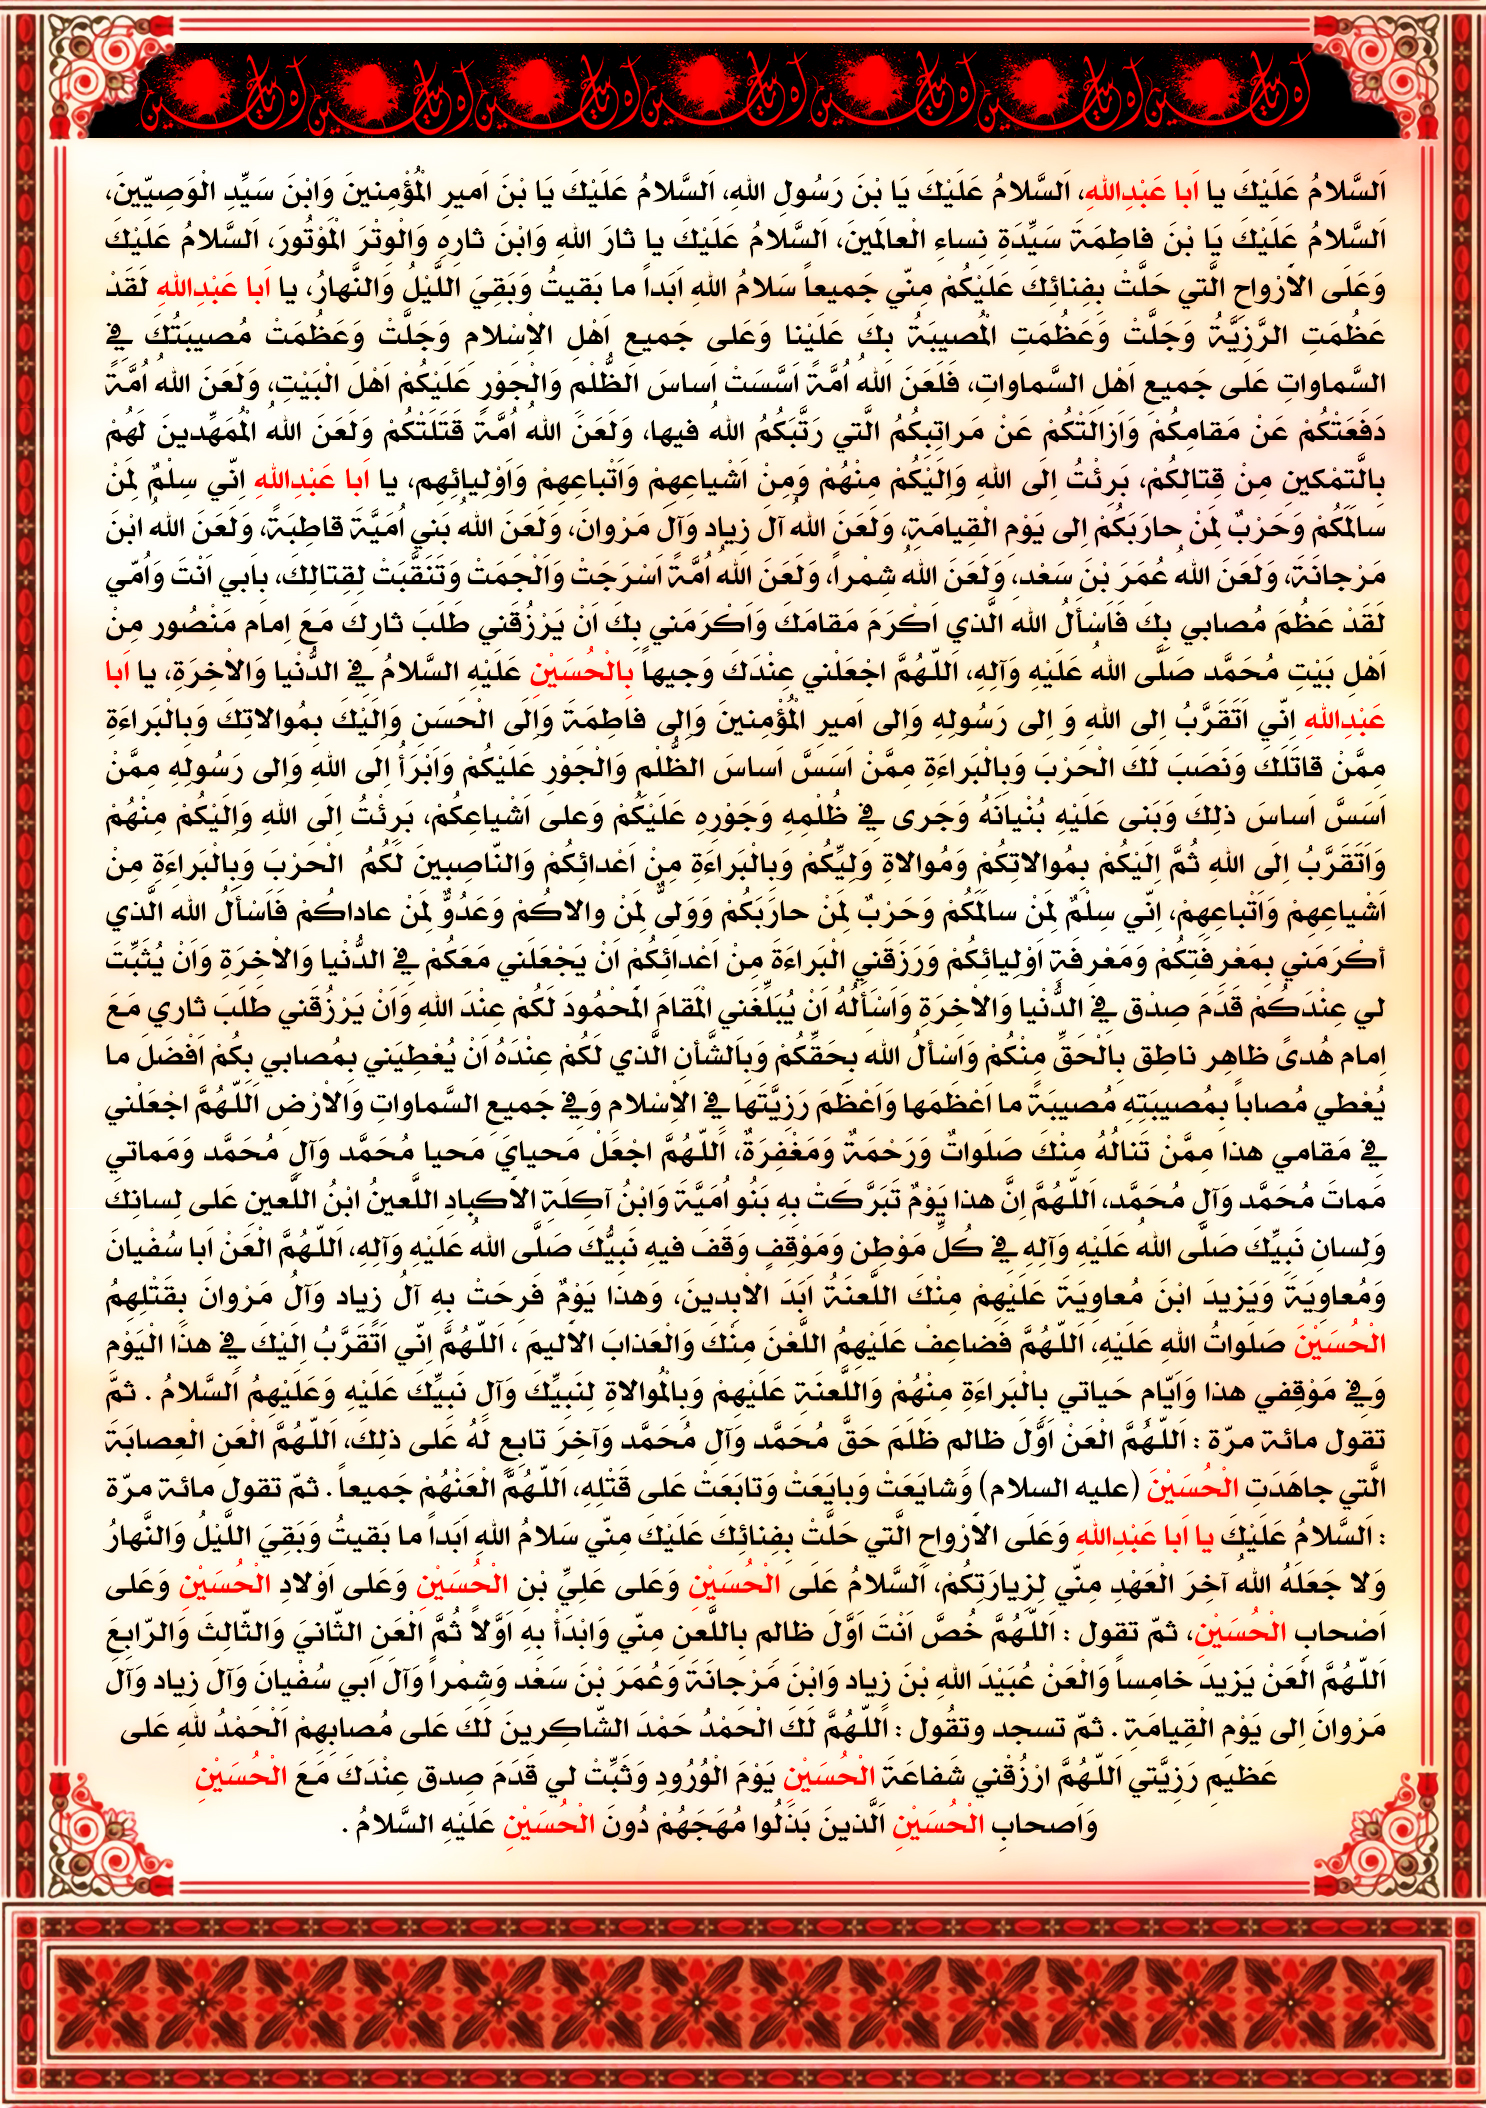 اَلسَّلامُ عَلَيْكَ يا اَبا عَبْدِاللهِ، اَلسَّلامُ عَلَيْكَ يَا بْنَ رَسُولِ اللهِ، اَلسَّلامُ عَلَيْكَ يَا بْنَ اَميرِ الْمُؤْمِنينَ وَابْنَ سَيِّدِ الْوَصِيّينَ،
اَلسَّلامُ عَلَيْكَ يَا بْنَ فاطِمَةَ سَيِّدَةِ نِساءِ الْعالَمينَ، اَلسَّلامُ عَلَيْكَ يا ثارَ اللهِ وَابْنَ ثارِهِ وَالْوِتْرَ الْمَوْتُورَ، اَلسَّلامُ عَلَيْكَ
وَعَلَى الاَرْواحِ الَّتي حَلَّتْ بِفِنائِكَ عَلَيْكُمْ مِنّي جَميعاً سَلامُ اللهِ اَبَداً ما بَقيتُ وَبَقِيَ اللَّيْلُ وَالنَّهارُ، يا اَبا عَبْدِاللهِ لَقَدْ
عَظُمَتِ الرَّزِيَّةُ وَجَلَّتْ وَعَظُمَتِ الْمُصيبَةُ بِكَ عَلَيْنا وَعَلى جَميعِ اَهْلِ الاِْسْلام وَجَلَّتْ وَعَظُمَتْ مُصيبَتُكَ فِي
السَّماواتِ عَلى جَميعِ اَهْلِ السَّماواتِ، فَلَعَنَ اللهُ اُمَّةً اَسَّسَتْ اَساسَ الظُّلْمِ وَالْجَوْرِ عَلَيْكُمْ اَهْلَ الْبَيْتِ، وَلَعَنَ اللهُ اُمَّةً
دَفَعَتْكُمْ عَنْ مَقامِكُمْ وَاَزالَتْكُمْ عَنْ مَراتِبِكُمُ الَّتي رَتَّبَكُمُ اللهُ فيها، وَلَعَنَ اللهُ اُمَّةً قَتَلَتْكُمْ وَلَعَنَ اللهُ الْمُمَهِّدينَ لَهُمْ
بِالَّتمْكينِ مِنْ قِتالِكُمْ، بَرِئْتُ اِلَى اللهِ وَاِلَيْكُمْ مِنْهُمْ وَمِنْ اَشْياعِهِمْ وَاَتْباعِهِمْ وَاَوْلِيائِهِم، يا اَبا عَبْدِاللهِ اِنّي سِلْمٌ لِمَنْ
سالَمَكُمْ وَحَرْبٌ لِمَنْ حارَبَكُمْ اِلى يَوْم الْقِيامَةِ، وَلَعَنَ اللهُ آل زِياد وَآلَ مَرْوانَ، وَلَعَنَ اللهُ بَني اُمَيَّةَ قاطِبَةً، وَلَعَنَ اللهُ ابْنَ
مَرْجانَةَ، وَلَعَنَ اللهُ عُمَرَ بْنَ سَعْد، وَلَعَنَ اللهُ شِمْراً، وَلَعَنَ اللهُ اُمَّةً اَسْرَجَتْ وَاَلْجَمَتْ وَتَنَقَّبَتْ لِقِتالِكَ، بِاَبي اَنْتَ وَاُمّي
لَقَدْ عَظُمَ مُصابي بِكَ فَاَسْأَلُ اللهَ الَّذي اَكْرَمَ مَقامَكَ وَاَكْرَمَني بِكَ اَنْ يَرْزُقَني طَلَبَ ثارِكَ مَعَ اِمام مَنْصُور مِنْ
اَهْلِ بَيْتِ مُحَمَّد صَلَّى اللهُ عَلَيْهِ وَآلِهِ، اَللّهُمَّ اجْعَلْني عِنْدَكَ وَجيهاً بِالْحُسَيْنِ عَلَيْهِ السَّلامُ فِي الدُّنْيا وَالاْخِرَةِ، يا اَبا
عَبْدِاللهِ اِنّي اَتَقَرَّبُ اِلى اللهِ وَ اِلى رَسُولِهِ وَاِلى اَميرِ الْمُؤْمِنينَ وَاِلى فاطِمَةَ وَاِلَى الْحَسَنِ وَاِلَيْكَ بِمُوالاتِكَ وَبِالْبَراءَةِ
مِمَّنْ قاتَلَكَ وَنَصَبَ لَكَ الْحَرْبَ وَبِالْبَراءَةِ مِمَّنْ اَسَسَّ اَساسَ الظُّلْمِ وَالْجَوْرِ عَلَيْكُمْ وَاَبْرَأُ اِلَى اللهِ وَاِلى رَسُولِهِ مِمَّنْ
اَسَسَّ اَساسَ ذلِكَ وَبَنى عَلَيْهِ بُنْيانَهُ وَجَرى فِي ظُلْمِهِ وَجَوْرِهِ عَلَيْكُمْ وَعلى اَشْياعِكُمْ، بَرِئْتُ اِلَى اللهِ وَاِلَيْكُمْ مِنْهُمْ
وَاَتَقَرَّبُ اِلَى اللهِ ثُمَّ اِلَيْكُمْ بِمُوالاتِكُمْ وَمُوالاةِ وَلِيِّكُمْ وَبِالْبَراءَةِ مِنْ اَعْدائِكُمْ وَالنّاصِبينَ لَكُمُ الْحَرْبَ وَبِالْبَراءَةِ مِنْ
اَشْياعِهِمْ وَاَتْباعِهِمْ، اِنّي سِلْمٌ لِمَنْ سالَمَكُمْ وَحَرْبٌ لِمَنْ حارَبَكُمْ وَوَلِىٌّ لِمَنْ والاكُمْ وَعَدُوٌّ لِمَنْ عاداكُمْ فَاَسْأَلُ اللهَ الَّذي
أكْرَمَني بِمَعْرِفَتِكُمْ وَمَعْرِفَةِ اَوْلِيائِكُمْ وَرَزَقَنِي الْبَراءَةَ مِنْ اَعْدائِكُمْ اَنْ يَجْعَلَني مَعَكُمْ فِي الدُّنْيا وَالاْخِرَةِ وَاَنْ يُثَبِّتَ
لي عِنْدَكُمْ قَدَمَ صِدْق فِي الدُّنْيا وَالاْخِرَةِ وَاَسْأَلُهُ اَنْ يُبَلِّغَنِي الْمَقامَ الْمَحْمُودَ لَكُمْ عِنْدَ اللهِ وَاَنْ يَرْزُقَني طَلَبَ ثاري مَعَ
اِمام هُدىً ظاهِر ناطِق بِالْحَقِّ مِنْكُمْ وَاَسْألُ اللهَ بِحَقِّكُمْ وَبِالشَّأنِ الَّذي لَكُمْ عِنْدَهُ اَنْ يُعْطِيَني بِمُصابي بِكُمْ اَفْضَلَ ما
يُعْطي مُصاباً بِمُصيبَتِهِ مُصيبَةً ما اَعْظَمَها وَاَعْظَمَ رَزِيَّتَها فِي الاِْسْلام وَفِي جَميعِ السَّماواتِ وَالاَرْضِ اَللّهُمَّ اجْعَلْني
فِي مَقامي هذا مِمَّنْ تَنالُهُ مِنْكَ صَلَواتٌ وَرَحْمَةٌ وَمَغْفِرَةٌ، اَللّهُمَّ اجْعَلْ مَحيايَ مَحيا مُحَمَّد وَآلِ مُحَمَّد وَمَماتي
مَماتَ مُحَمَّد وَآلِ مُحَمَّد، اَللّهُمَّ اِنَّ هذا يَوْمٌ تَبَرَّكَتْ بِهِ بَنُو اُمَيَّةَ وَابْنُ آكِلَةِ الاَكبادِ اللَّعينُ ابْنُ اللَّعينِ عَلى لِسانِكَ
وَلِسانِ نَبِيِّكَ صَلَّى اللهُ عَلَيْهِ وَآلِهِ فِي كُلِّ مَوْطِن وَمَوْقِفٍ وَقَفَ فيهِ نَبِيُّكَ صَلَّى اللهُ عَلَيْهِ وَآلِهِ، اَللّهُمَّ الْعَنْ اَبا سُفْيانَ
وَمُعاوِيَةَ وَيَزيدَ ابْنَ مُعاوِيَةَ عَلَيْهِمْ مِنْكَ اللَّعنَةُ اَبَدَ الاْبِدينَ، وَهذا يَوْمٌ فَرِحَتْ بِهِ آلُ زِياد وَآلُ مَرْوانَ بِقَتْلِهِمُ
الْحُسَيْنَ صَلَواتُ اللهِ عَلَيْهِ، اَللّهُمَّ فَضاعِفْ عَلَيْهِمُ اللَّعْنَ مِنْكَ وَالْعَذابَ الاَليمَ ، اَللّهُمَّ اِنّي اَتَقَرَّبُ اِلَيْكَ فِي هذَا الْيَوْم
وَفِي مَوْقِفي هذا وَاَيّام حَياتي بِالْبَراءَةِ مِنْهُمْ وَاللَّعنَةِ عَلَيْهِمْ وَبِالْمُوالاةِ لِنَبِيِّكَ وَآلِ نَبِيِّكَ عَلَيْهِ وَعَلَيْهِمُ اَلسَّلامُ . ثمَّ
تقول مائة مرّة : اَللّهُمَّ الْعَنْ اَوَّلَ ظالم ظَلَمَ حَقَّ مُحَمَّد وَآلِ مُحَمَّد وَآخِرَ تابِعٍ لَهُ عَلى ذلِكَ، اَللّهُمَّ الْعَنِ الْعِصابَةَ
الَّتي جاهَدَتِ الْحُسَيْنَ (عليه السلام) وَشايَعَتْ وَبايَعَتْ وَتابَعَتْ عَلى قَتْلِهِ، اَللّهُمَّ الْعَنْهُمْ جَميعاً . ثمّ تقول مائة مرّة
: اَلسَّلامُ عَلَيْكَ يا اَبا عَبْدِاللهِ وَعَلَى الاَرْواحِ الَّتي حَلَّتْ بِفِنائِكَ عَلَيْكَ مِنّي سَلامُ اللهِ اَبَداً ما بَقيتُ وَبَقِيَ اللَّيْلُ وَالنَّهارُ
وَلا جَعَلَهُ اللهُ آخِرَ الْعَهْدِ مِنّي لِزِيارَتِكُمْ، اَلسَّلامُ عَلَى الْحُسَيْنِ وَعَلى عَلِيِّ بْنِ الْحُسَيْنِ وَعَلى اَوْلادِ الْحُسَيْنِ وَعَلى
اَصْحابِ الْحُسَيْنِ، ثمّ تقول : اَللّهُمَّ خُصَّ اَنْتَ اَوَّلَ ظالم بِاللَّعنِ مِنّي وَابْدَأْ بِهِ اَوَّلاً ثُمَّ الْعَنِ الثّانيَ وَالثّالِثَ وَالرّابِعَ
اَللّهُمَّ الْعَنْ يَزيدَ خامِساً وَالْعَنْ عُبَيْدَ اللهِ بْنَ زِياد وَابْنَ مَرْجانَةَ وَعُمَرَ بْنَ سَعْد وَشِمْراً وَآلَ اَبي سُفْيانَ وَآلَ زِياد وَآلَ
مَرْوانَ اِلى يَوْم الْقِيامَةِ . ثمّ تسجد وتقُول : اَللّهُمَّ لَكَ الْحَمْدُ حَمْدَ الشّاكِرينَ لَكَ عَلى مُصابِهِمْ اَلْحَمْدُ للهِ عَلى
عَظيمِ رَزِيَّتي اَللّهُمَّ ارْزُقْني شَفاعَةَ الْحُسَيْنِ يَوْمَ الْوُرُودِ وَثَبِّتْ لي قَدَمَ صِدق عِنْدَكَ مَعَ الْحُسَيْنِ
وَاَصحابِ الْحُسَيْنِ اَلَّذينَ بَذَلُوا مُهَجَهُمْ دُونَ الْحُسَيْنِ عَلَيْهِ السَّلامُ .